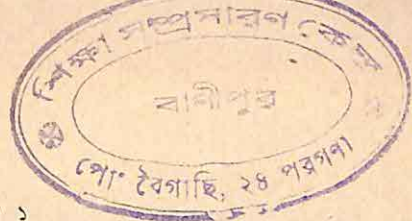 শিক্ষা সম্প্রসারণ কেন্দ্র
বাণীপুর
পোঃ বৈগাছি, ২৪ পরগণা
১